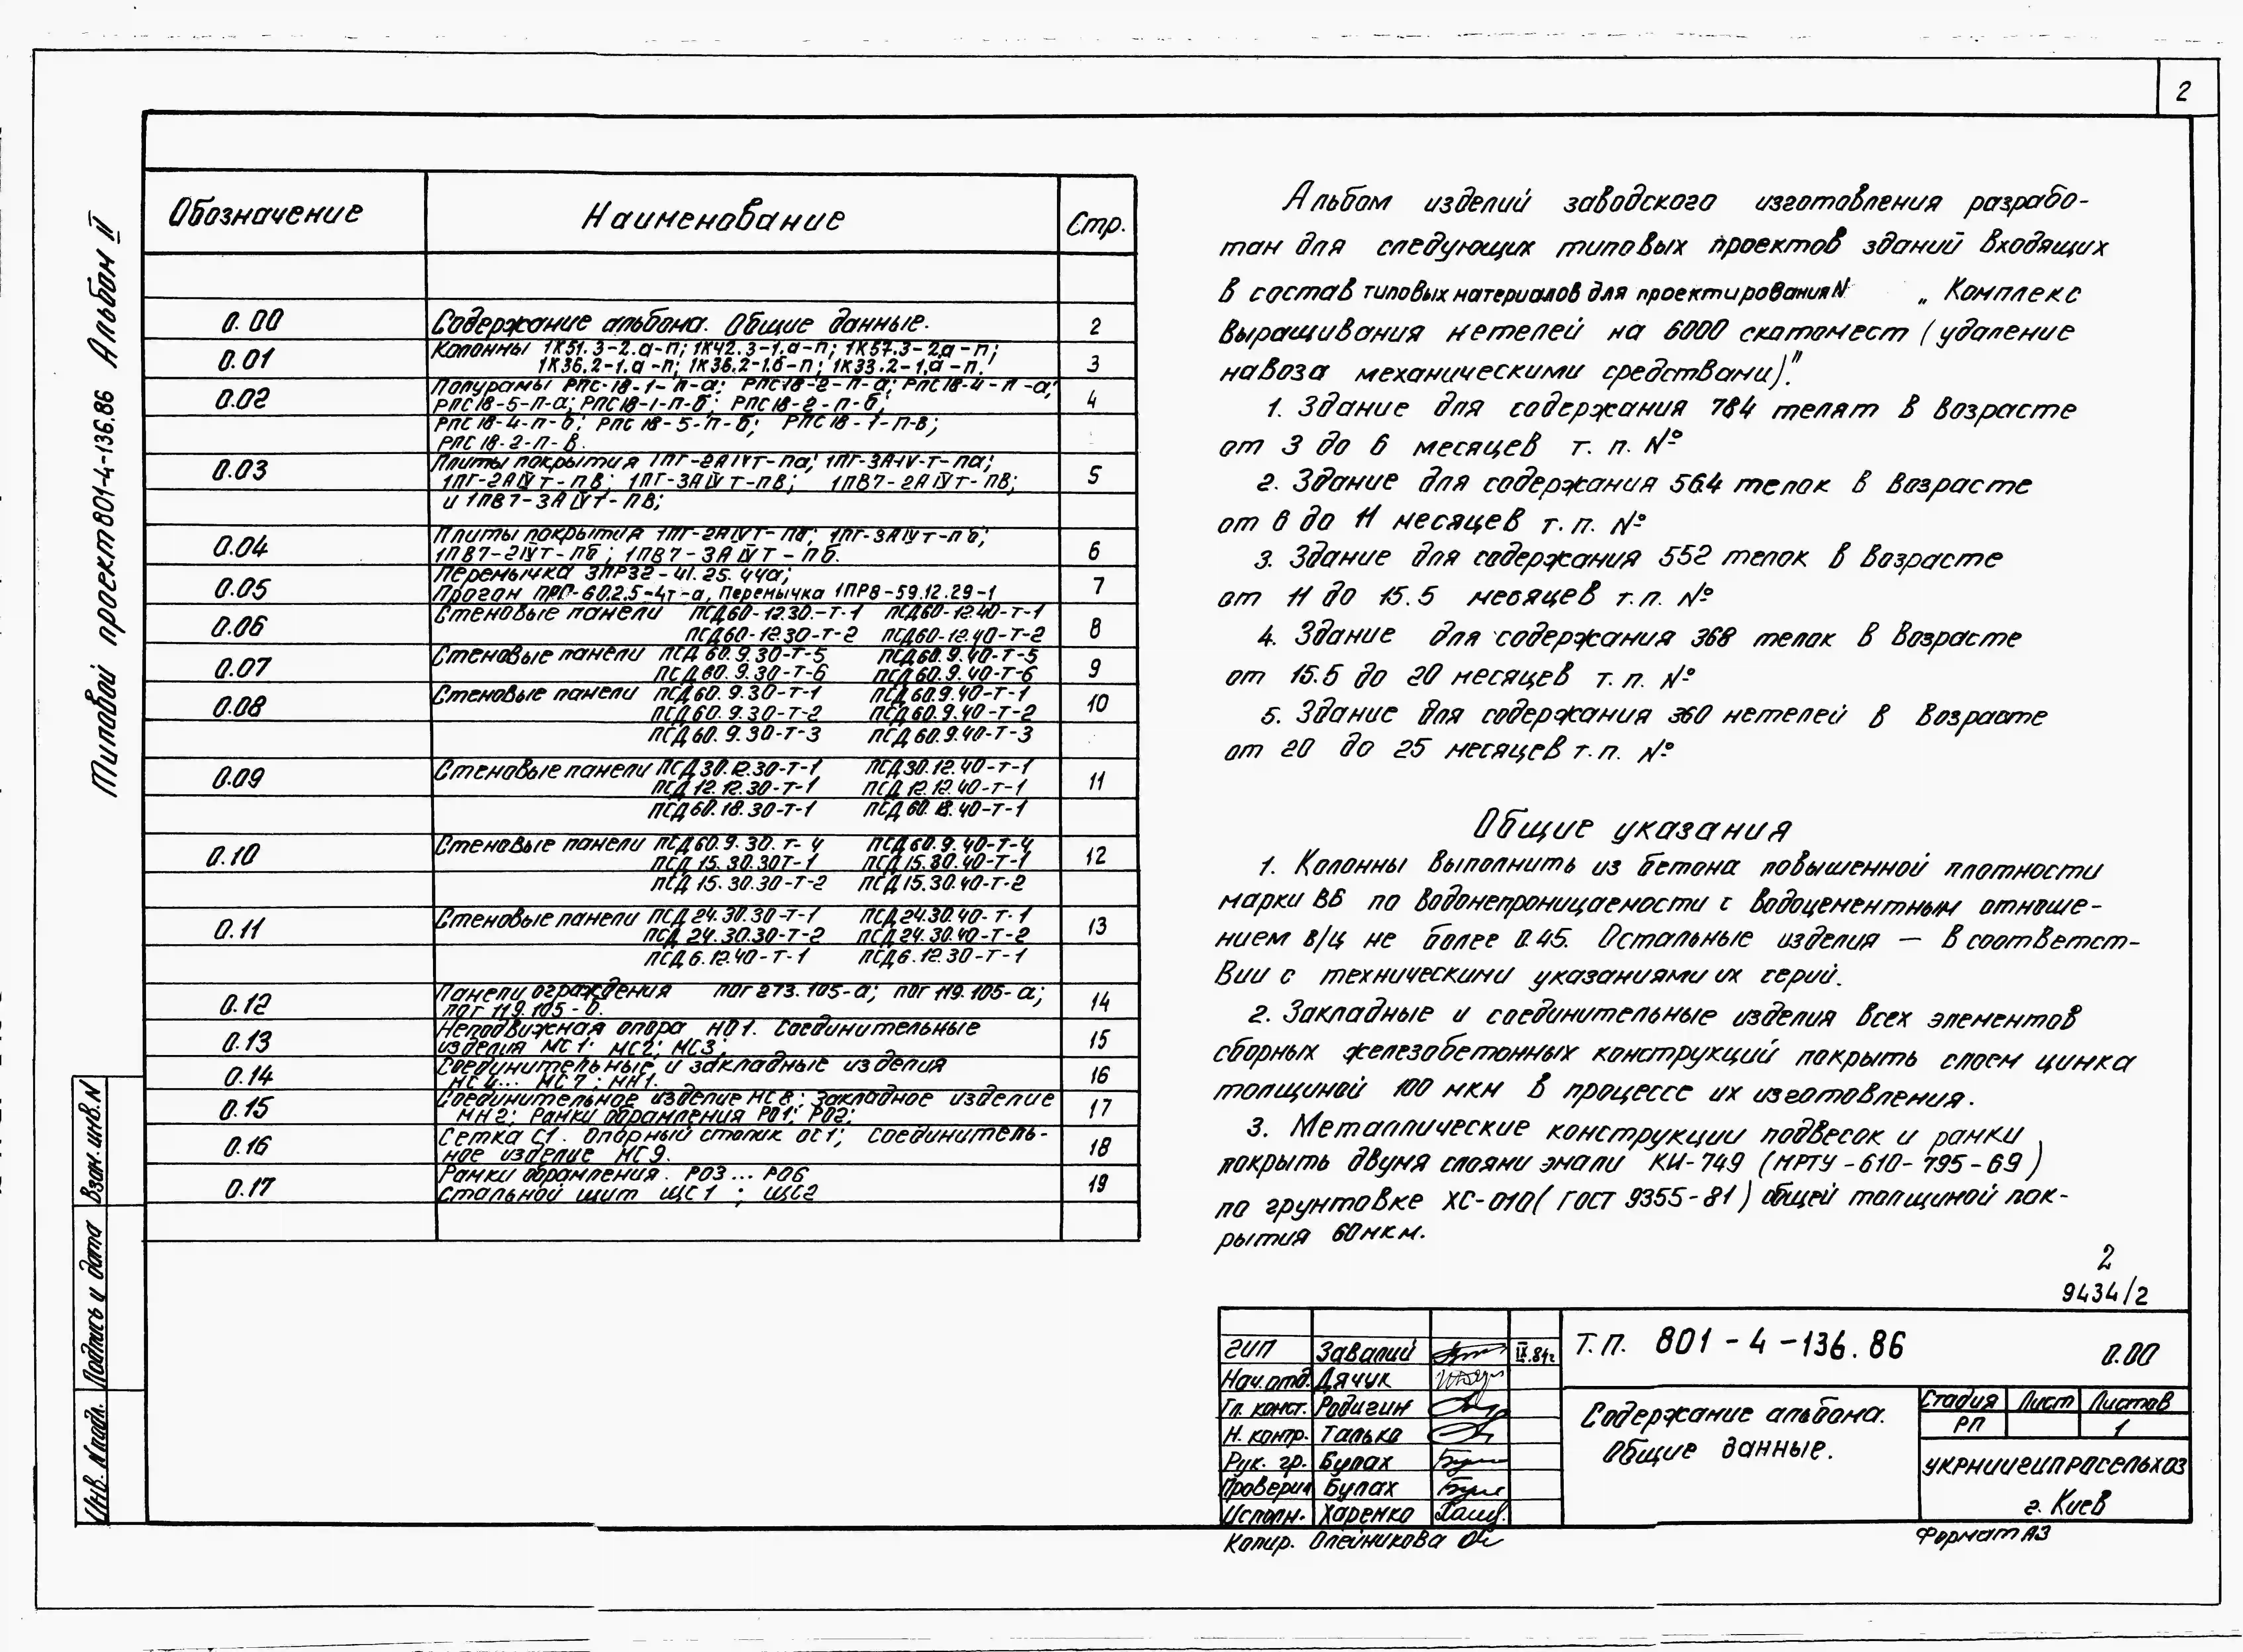 2
Типовой проект 801-4-136.86 Альбом II
Обозначение Наименование Стр.
0.00 Содержание альбома. Общие данные. 2
Колонны 1К51.3-2.а-п; 1К42.3-1.а-п; 1К57.3-2а-п;
0.01 1К36.2-1.а-п; 1К36.2-1.б-п; 1К33.2-1.а-п. 3
Полурамы РПС-18-1-п-а; РПС18-2-п-а; РПС18-4-п-а;
0.02 РПС18-5-п-а; РПС18-1-п-б; РПС18-2-п-б; 4
РПС18-4-п-б; РПС18-5-п-б; РПС18-1-п-в;
РПС18-2-п-в.
Плиты покрытия 1ПГ-2АIVт-па; 1ПГ-3АIV-т-па;
0.03 1ПГ-2АIVт-пв; 1ПГ-3АIVт-пв; 1ПВ7-2АIVт-пв; 5
и 1ПВ7-3АIVт-пв;
Плиты покрытия 1ПГ-2АIVт-пб; 1ПГ-3АIVт-пб;
0.04 1ПВ7-2IVт-пб; 1ПВ7-3АIVт-пб. 6
Перемычка 3ПР32-41.25.44а;
0.05 Прогон ПРП-60.2.5-4т-а, Перемычка 1ПР8-59.12.29-1 7
Стеновые панели ПСД60-12.30-т-1 ПСД60-12.40-т-1
0.06 ПСД60-12.30-т-2 ПСД60-12.40-т-2 8
Стеновые панели ПСД 60.9.30-т-5 ПСД60.9.40-т-5
0.07 ПСД60.9.30-т-6 ПСД60.9.40-т-6 9
Стеновые панели ПСД60.9.30-т-1 ПСД60.9.40-т-1
0.08 ПСД60.9.30-т-2 ПСД60.9.40-т-2 10
ПСД60.9.30-т-3 ПСД60.9.40-т-3
Стеновые панели ПСД30.12.30-т-1 ПСД30.12.40-т-1
0.09 ПСД12.12.30-т-1 ПСД12.12.40-т-1 11
ПСД60.18.30-т-1 ПСД60.18.40-т-1
Стеновые панели ПСД60.9.30.т-4 ПСД60.9.40-т-4
0.10 ПСД15.30.30т-1 ПСД15.30.40-т-1 12
ПСД15.30.30-т-2 ПСД15.30.40-т-2
Стеновые панели ПСД24.30.30-т-1 ПСД24.30.40-т-1
0.11 ПСД24.30.30-т-2 ПСД24.30.40-т-2 13
ПСД6.12.40-т-1 ПСД6.12.30-т-1
Панели ограждения пог 273.105-а; пог 119.105-а;
0.12 пог 119.105-б. 14
Неподвижная опора НО1. Соединительные
0.13 изделия МС1; МС2; МС3; 15
Соединительные и закладные изделия
0.14 МС4... МС7; МН1. 16
Соединительное изделие МС8; Закладное изделие
0.15 МН2; Рамки обрамления РО1; РО2; 17
Сетка С1. Опорный столик ОС1; Соединитель-
0.16 ное изделие МС9. 18
Рамки обрамления. РО3... РО6
0.17 Стальной щит ЩС1; ЩС2 19
Альбом изделий заводского изготовления разрабо-
тан для следующих типовых проектов зданий входящих
в состав типовых материалов для проектирования N „ Комплекс
выращивания нетелей на 6000 скотомест (удаление
навоза механическими средствами)".
1. Здание для содержания 784 телят в возрасте
от 3 до 6 месяцев т. п. №
2. Здание для содержания 564 телок в возрасте
от 6 до 11 месяцев т. п. №
3. Здание для содержания 552 телок в возрасте
от 11 до 15.5 месяцев т. п. №
4. Здание для содержания 368 телок в возрасте
от 15.5 до 20 месяцев т. п. №
5. Здание для содержания 360 нетелей в возрасте
от 20 до 25 месяцев т. п. №
Общие указания
1. Колонны выполнить из бетона повышенной плотности
марки В6 по водонепроницаемости с водоцементным отноше-
нием в/ц не более 0.45. Остальные изделия — в соответст-
вии с техническими указаниями их серий.
2. Закладные и соединительные изделия всех элементов
сборных железобетонных конструкций покрыть слоем цинка
толщиной 100 мкм в процессе их изготовления.
3. Металлические конструкции подвесок и рамки
покрыть двумя слоями эмали КИ-749 (МРТУ-610-795-69)
по грунтовке ХС-010 (ГОСТ 9355-81) общей толщиной пок-
рытия 60 мкм.
2
9434/2
ГИП Завалий IX.84г
Нач.отд. Дячук
Гл. конст. Родигин
Н. контр. Талько
Рук. гр. Булах
Проверил Булах
Исполн. Харенко
Т.П. 801-4-136.86 0.00
Содержание альбома.
Общие данные.
Стадия Лист Листов
РП 1
УКРНИИГИПРОСЕЛЬХОЗ
г. Киев
Копир. Олейникова
Формат А3
Взам.инв.N
Подпись и дата
Инв. N подл.